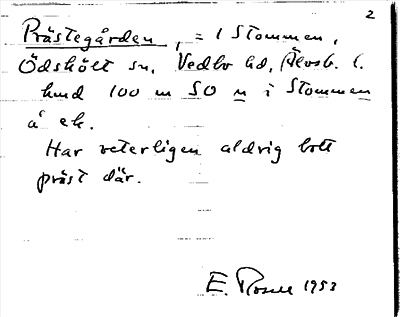 2
Prästegården, = 1 Stommen,
Ödskölt sn, Vedbo hd, Älvsb. l.
hmd 100 m SO n i Stommen
å ek.
Har veterligen aldrig bott
präst där.
E. Rosell 1953